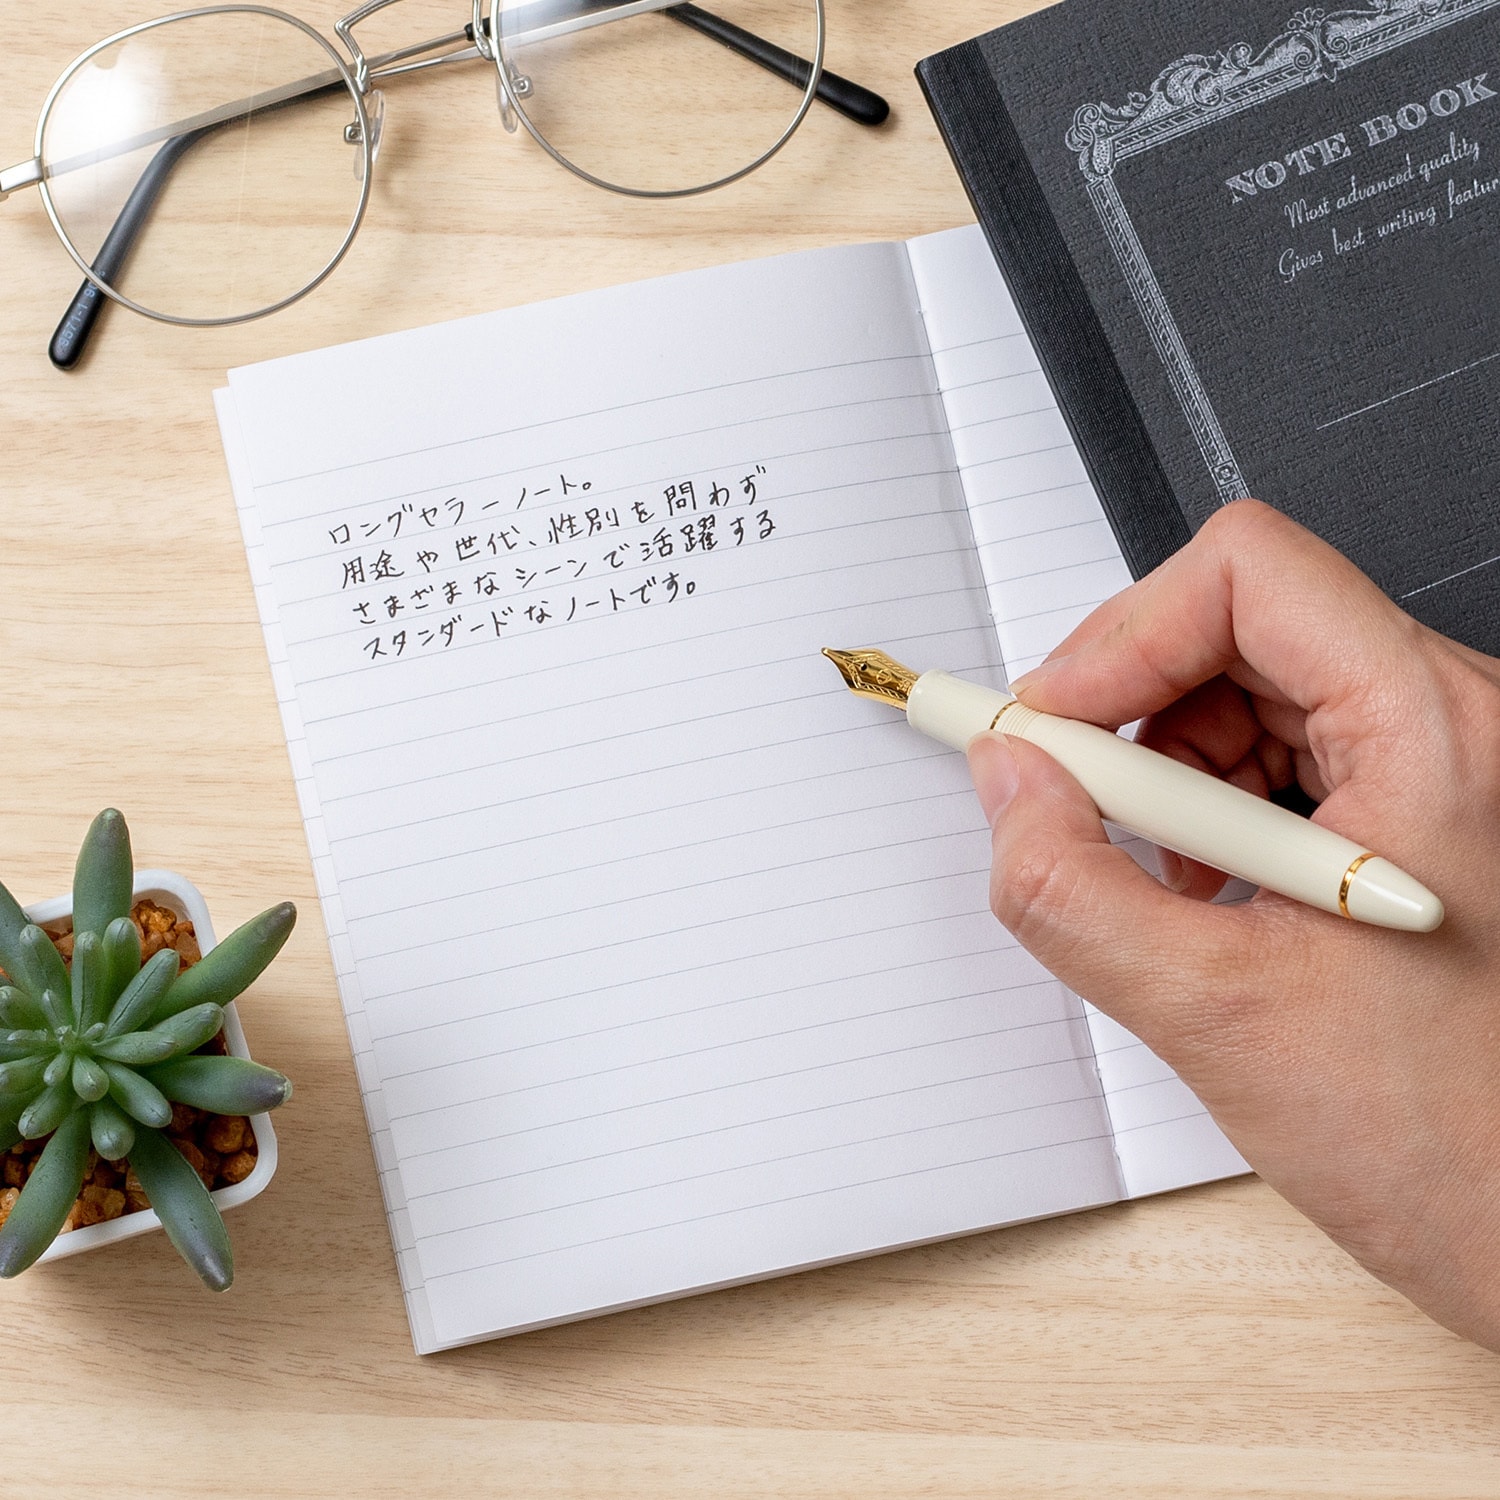 ロングセラーノート。
用途や世代、性別を問わず
さまざまなシーンで活躍する
スタンダードなノートです。
NOTE BOOK
Most advanced quality
Gives best writing featur